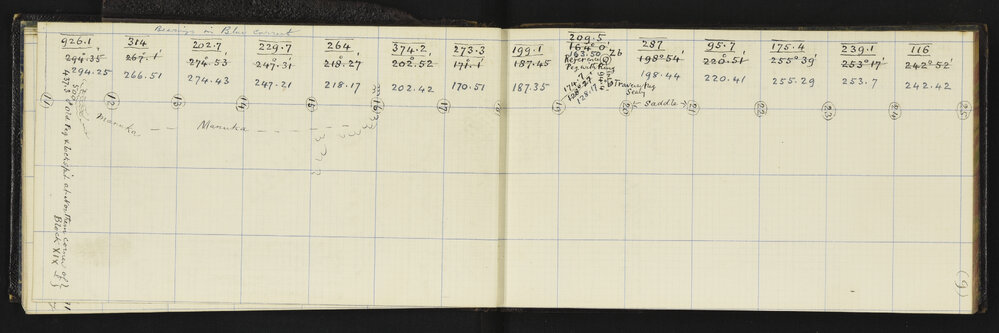 Bearings in Blue correct
926.1 314 202.7 229.7 264 374.2 273.3
294.35 267.1 274.53 247.31 218.27 202.52 171.1
294.25 266.51 274.43 247.21 218.17 202.42 170.51
11 12 13 14 15 16 17
Manuka — — Manuka — — — —
Old Peg & Lockspit at Northern corner of
Block XIX
199.1 209.5 287 95.7 175.4 239.1 116
187.45 164°0' 198°54' 220.51 255°39' 253°17' 242°52'
163.50
Reference
Peg with Ring
187.35 198.44 220.41 255.29 253.7 242.42
Traverse Peg
128.27
128.17
19 20 ← Saddle → 21 22 23 24 25
(9)